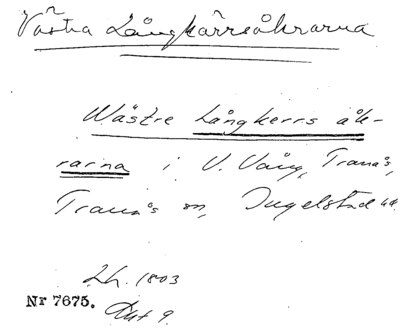 Västra Långkärrsåkrarna
Wästre Långkerrs åk-
rarna i V. Vång, Tranås,
Tranås sn, Ingelstad hd.
Lh. 1803
Nr 7675. Akt 9.